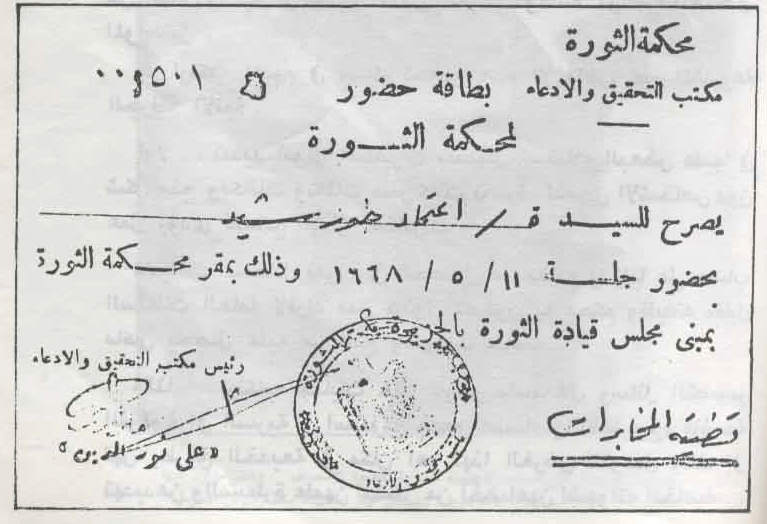 محكمة الثورة
مكتب التحقيق والادعاء بطاقة حضور
لمحكمة الثورة
يصرح للسيدة / اعتماد خورشيد
بحضور جلسة ١١ / ٥ / ١٦٦٨ وذلك بمقر محكمة الثورة
بمبنى مجلس قيادة الثورة بالجزيرة
رئيس مكتب التحقيق والادعاء
«على نور الدين»
قضية المخابرات